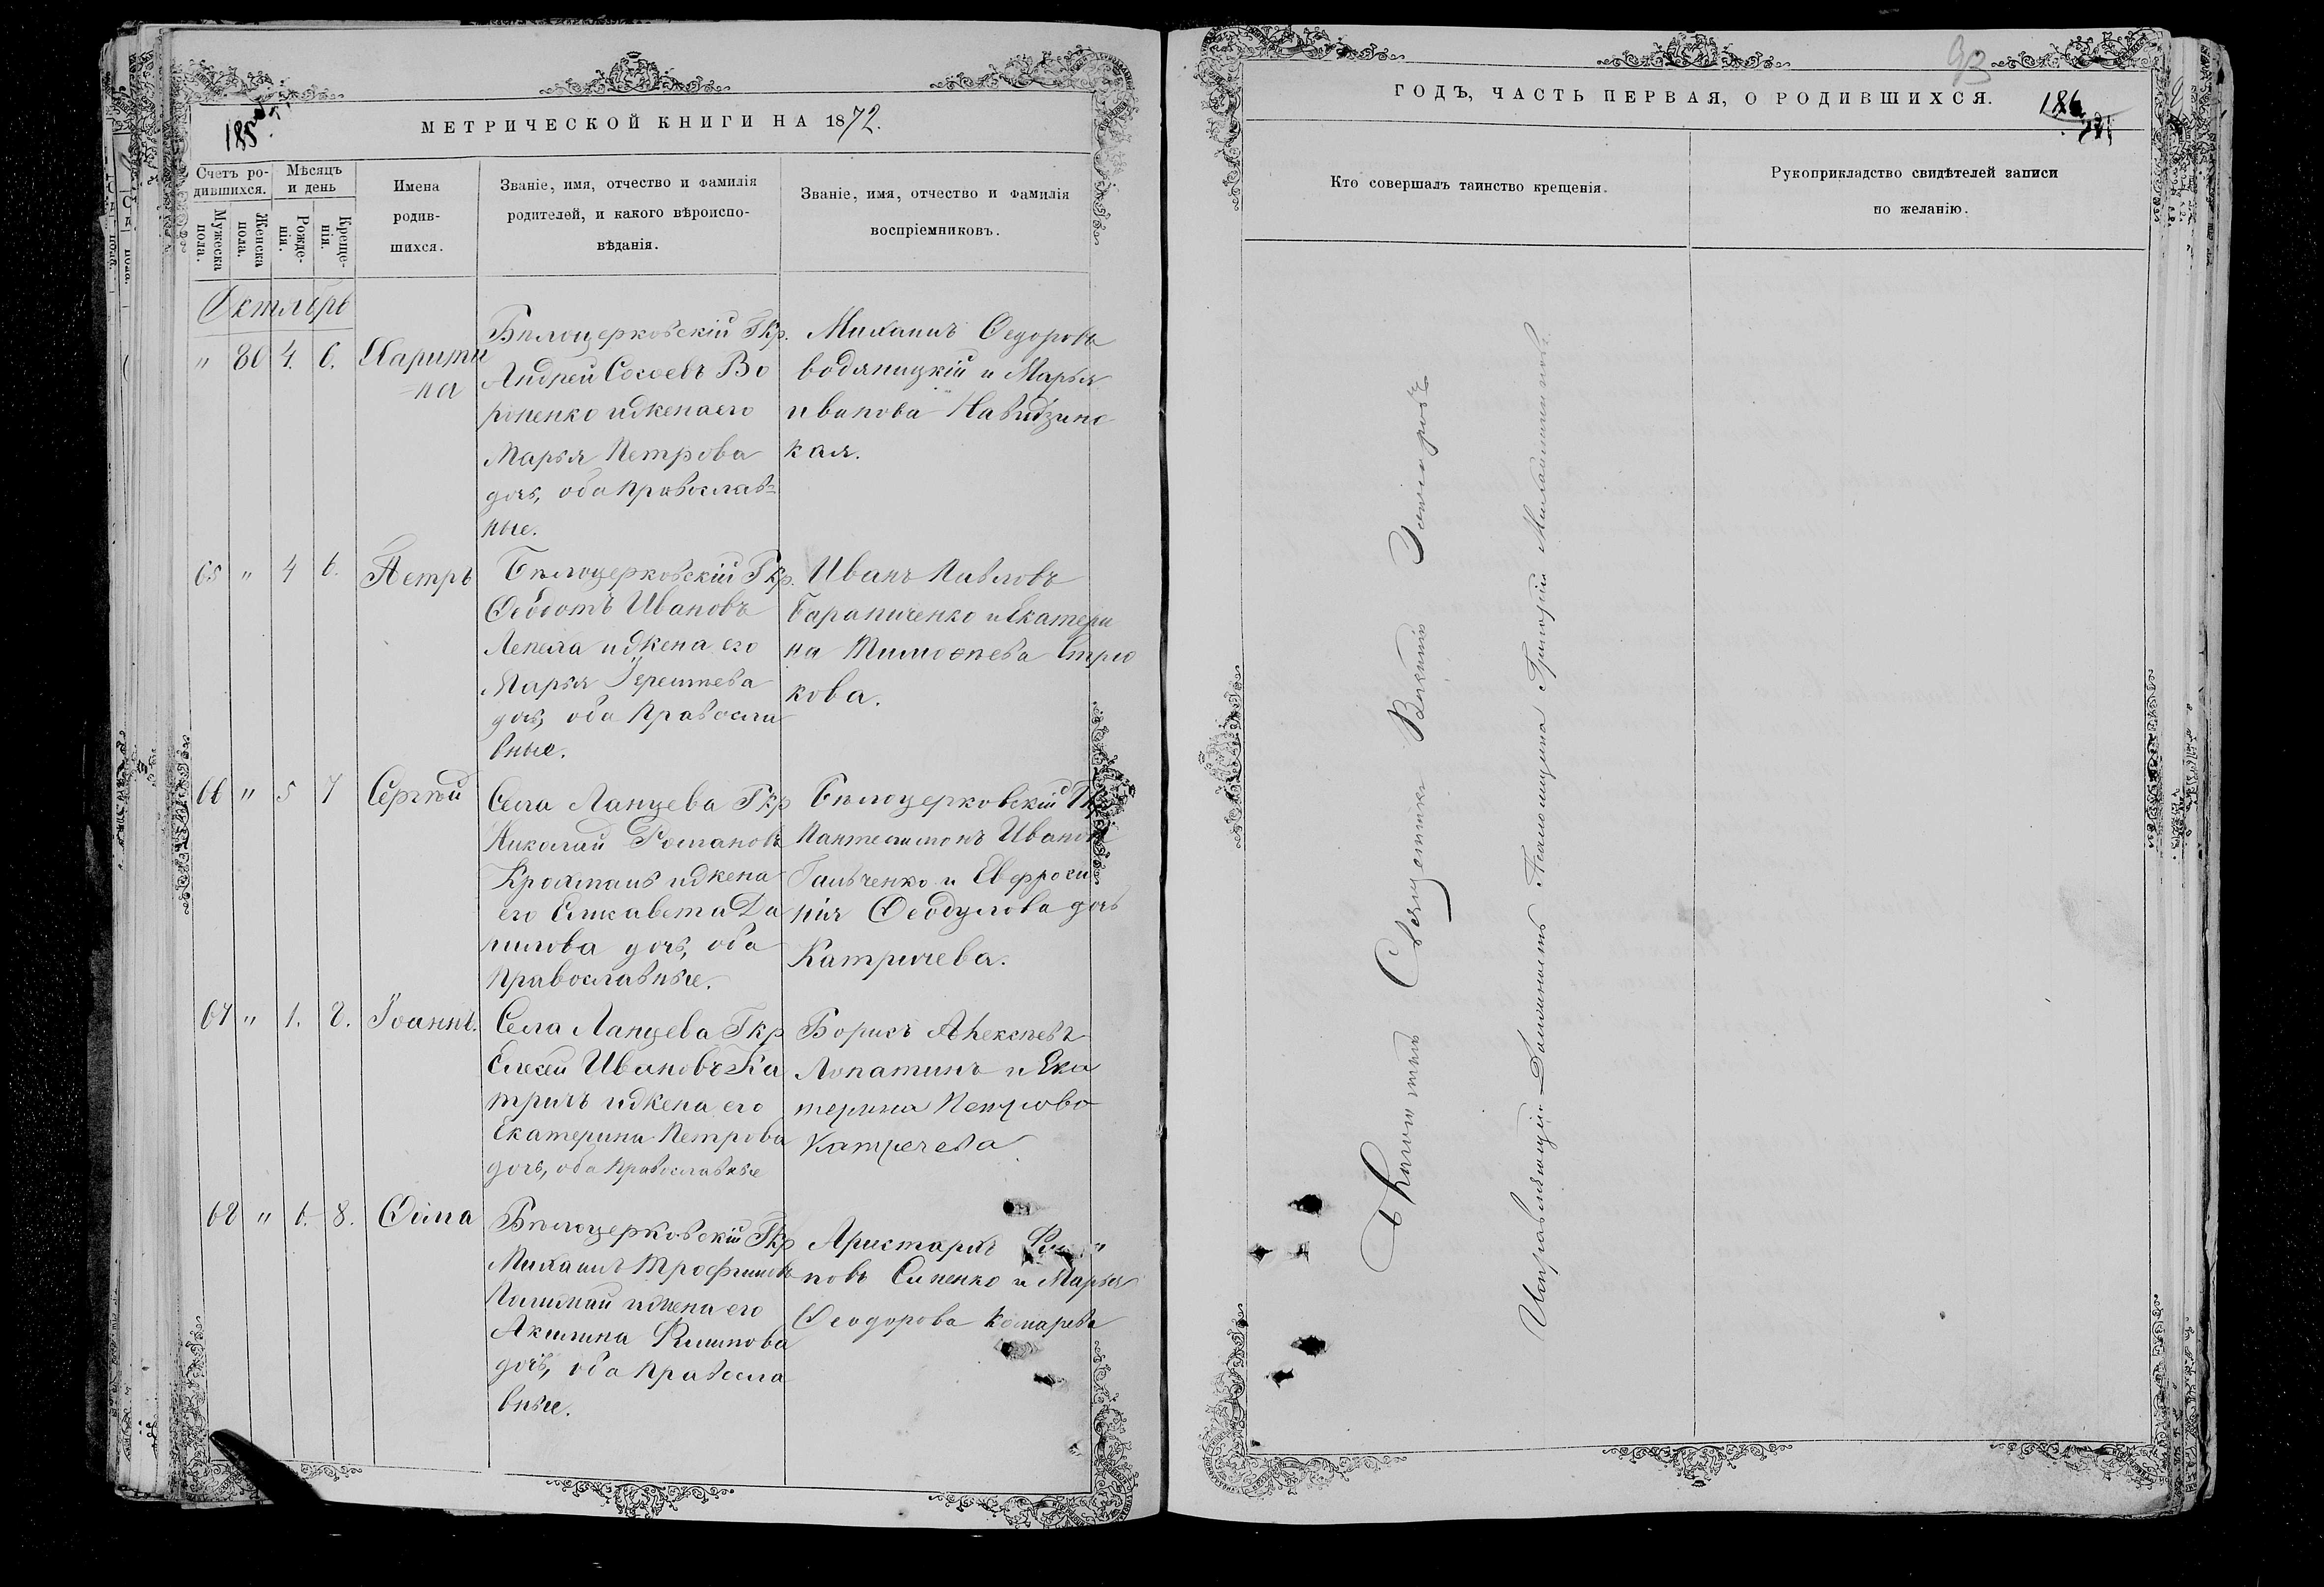 185
МЕТРИЧЕСКОЙ КНИГИ НА 1872.
Счетъ ро-
дившихся.
Мужеска
пола.
Женска
пола.
Мѣсяцъ
и день
Рожде-
нія.
Креще-
нія.
Имена
родив-
шихся.
Званіе, имя, отчество и фамилія
родителей, и какого вѣроиспо-
вѣданія.
Званіе, имя, отчество и фамилія
воспріемниковъ.
Октябрь
" 80 4. 6. Харити
на
Бѣлоцерковскій Гкр.
Андрей Сосоевъ Во
роненко и жена его
Марья Петрова
дочь, оба православ=
ные.
Михаилъ Федоровъ
Водяницкій и Марья
иванова
кая.
65 " 4 6. Петръ
Бѣлоцерковскій Гкр.
Ѳедотъ Ивановъ
Лепеха и жена его
Марья
дочь, оба Правосла
вные.
Иванъ Павловъ
Бараниченко и Екатери
на Тимоѳѣева Стрю
кова.
66 " 5 7 Сергѣй
Села Ланцева Гкр
Николай Романовъ
Крохмаль и жена
его Елисавета Да
нилова дочь, оба
Православные.
Бѣлоцерковскій Гкр
Пантелимонъ Ивановъ
Гальченко и Евфроси
нія Ѳеодулова дочь
Катричева.
67 " 1. 8. Іоаннъ.
Села Ланцева Гкр
Елисей Ивановъ Ка
тричъ и жена его
Екатерина Петрова
дочь, оба православные
Борисъ Алексѣевъ
Лопатинъ и Ека
терина Петрова
Катречева
68 " 6. 8. Ѳома
Бѣлоцерковскій Гкр
Михаилъ Трофимовъ
и жена его
Акилина Филипова
дочь, оба правосла
вные.
Аристархъ
новъ Синенко и Марья
Ѳеодорова Комарева
93
ГОДЪ, ЧАСТЬ ПЕРВАЯ, О РОДИВШИХСЯ.
186
Кто совершалъ таинство крещенія.
Рукоприкладство свидѣтелей записи
по желанію.
Священникъ Василій
Исправляющій Должность Псаломщика Григорій